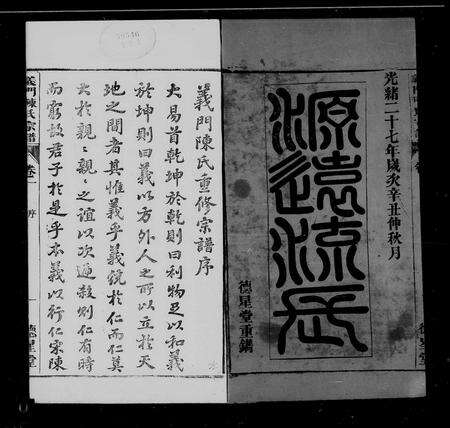 光緒二十七年歲次辛丑仲秋月
源遠流長
德星堂重鐫
德星堂
義門陳氏重修宗譜序
大易首乾坤於乾則曰利物足以和義
於坤則曰義以方外人之所以立於天
地之間者其惟義乎義貌於仁而仁莫
大於親々親々之誼以次遞殺則仁有時
而窮故君子於是乎本義以行仁宋陳
義門陳氏宗譜
卷一
序
德星堂